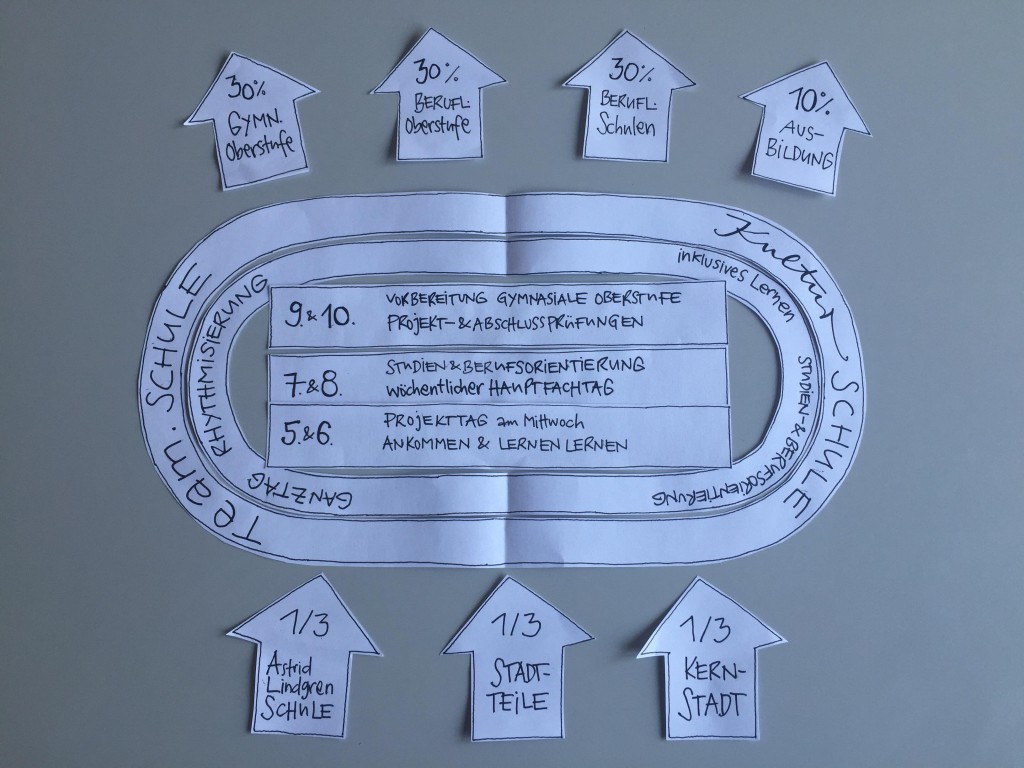 30%
GYMN.
Oberstufe
30%
BERUFL.
Oberstufe
30%
BERUFL.
Schulen
10%
AUS-
BILDUNG
Team. SCHULE
Kultur SCHULE
GANZTAG RHYTHMISIERUNG
inklusives Lernen
STUDIEN- & BERUFSORIENTIERUNG
9. & 10.
VORBEREITUNG GYMNASIALE OBERSTUFE
PROJEKT- & ABSCHLUSSPRÜFUNGEN
7. & 8.
STUDIEN & BERUFSORIENTIERUNG
wöchentlicher HAUPTFACHTAG
5. & 6.
PROJEKTTAG am Mittwoch
ANKOMMEN & LERNEN LERNEN
1/3
Astrid
Lindgren
SCHULE
1/3
STADT-
TEILE
1/3
KERN-
STADT